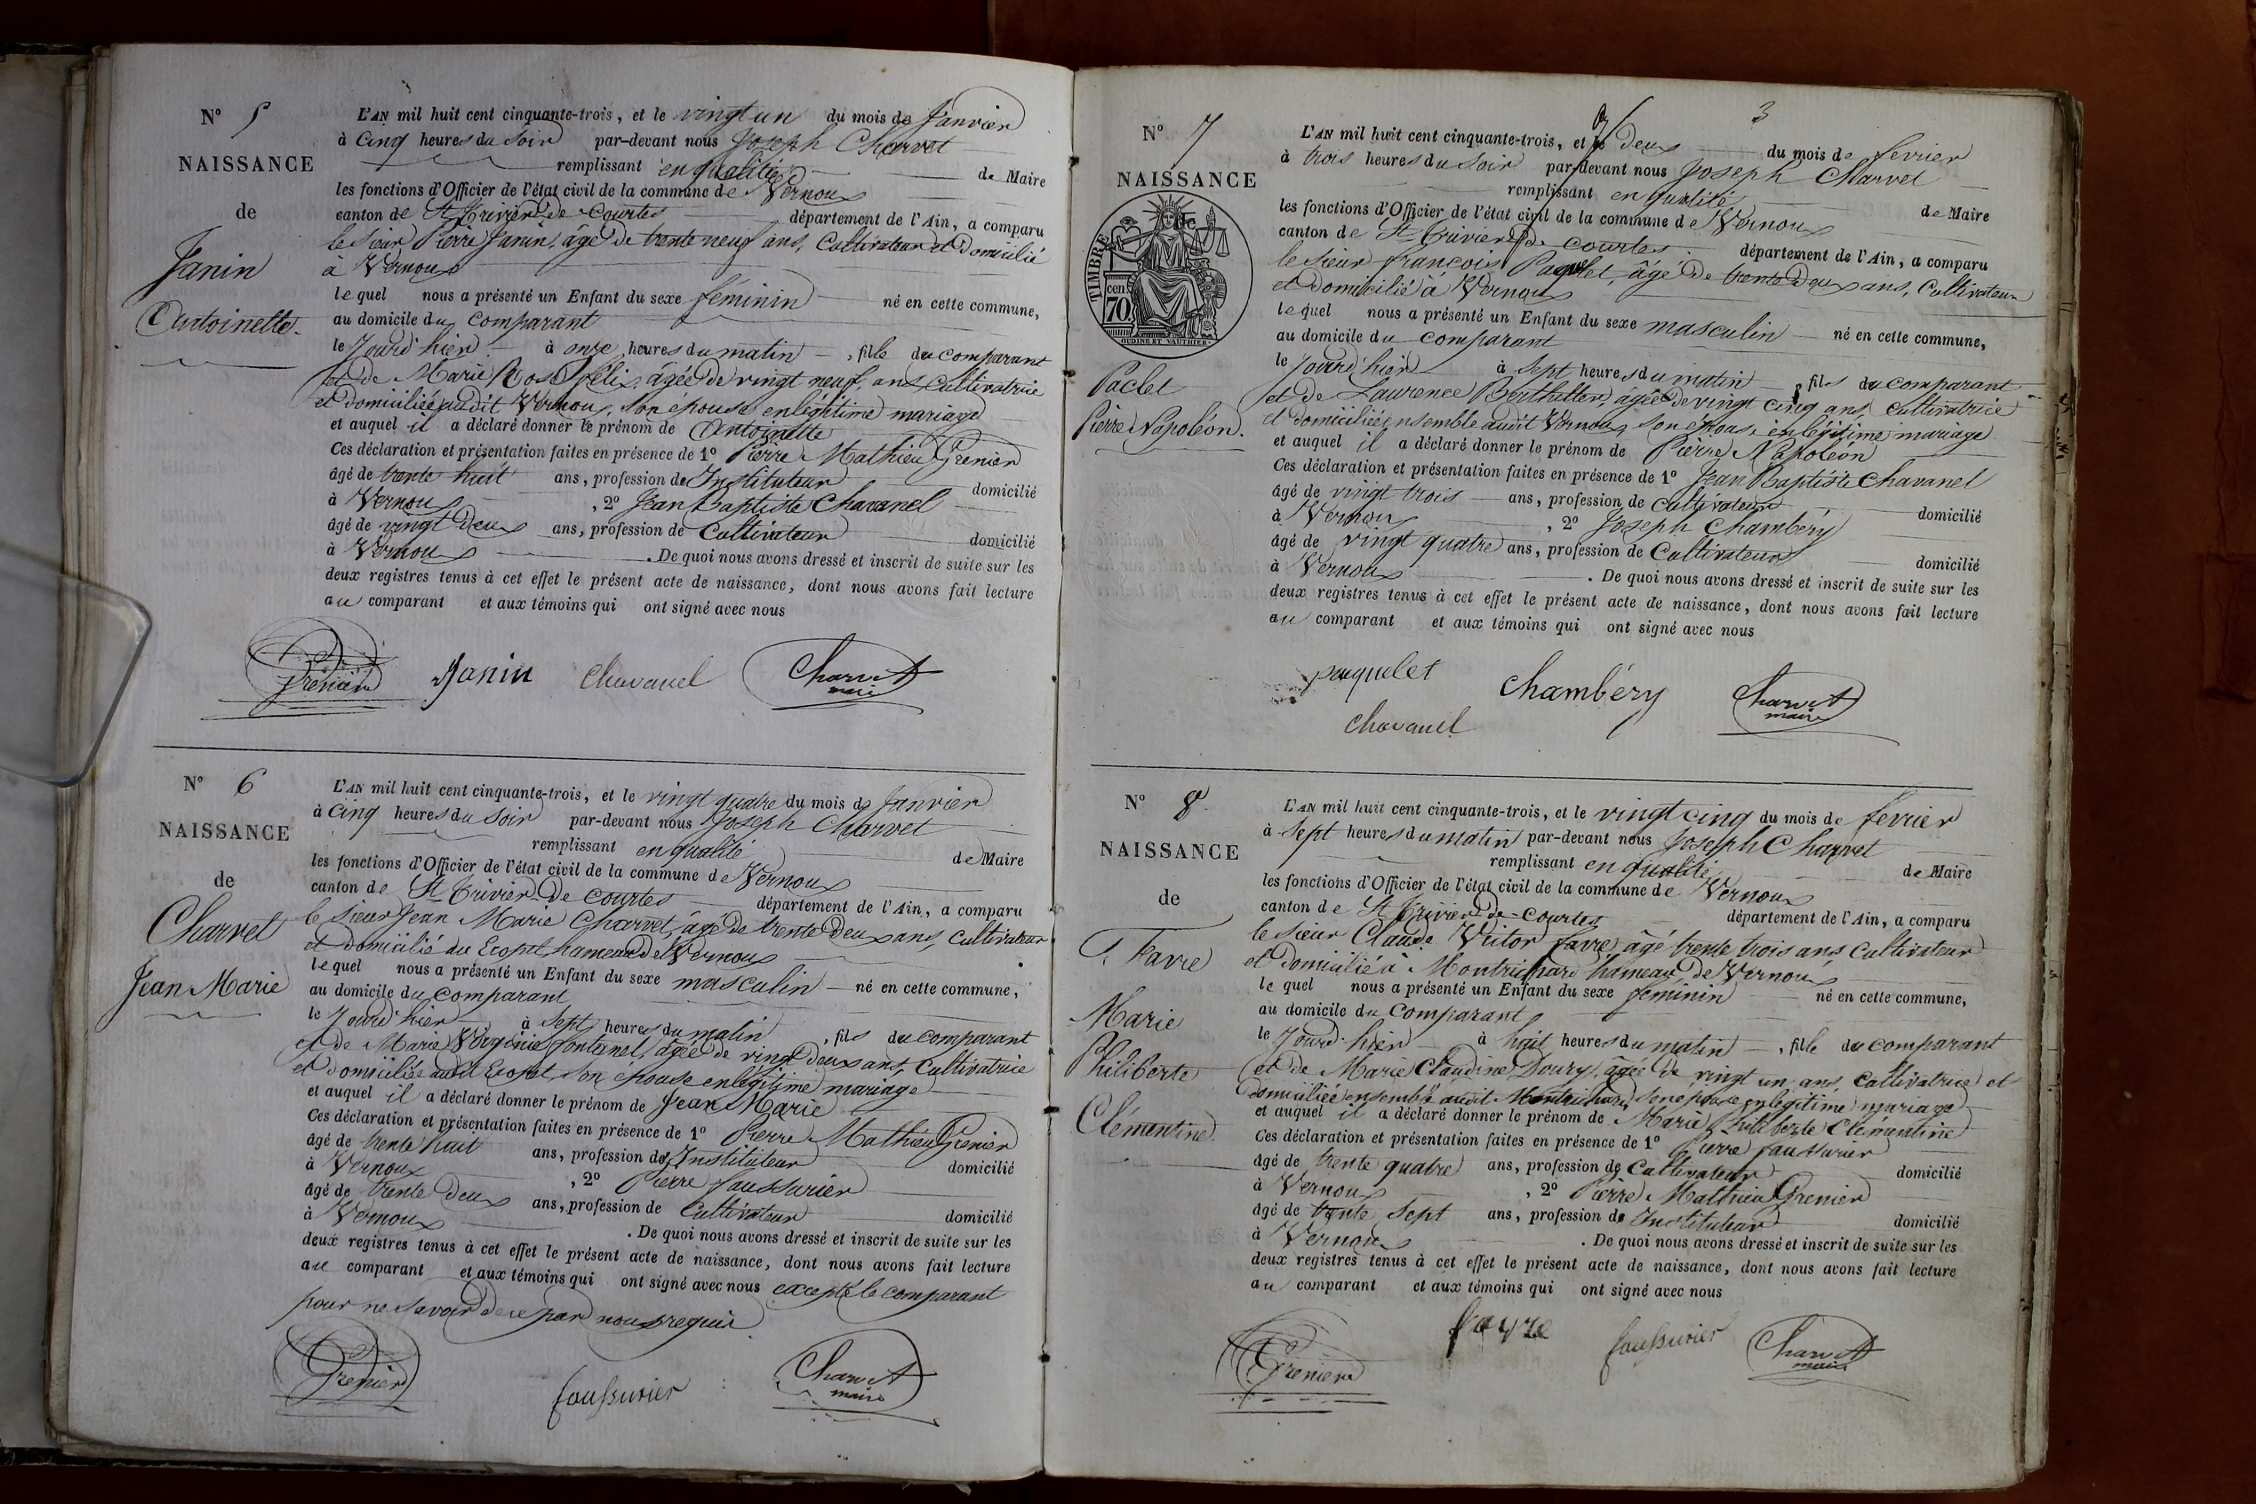 N° 5
NAISSANCE
de
Janin
Antoinette.
L'AN mil huit cent cinquante-trois, et le vingt un du mois de Janvier
à cinq heures du soir par-devant nous Joseph Charvet
remplissant en qualité de Maire
les fonctions d'Officier de l'état civil de la commune de Vernoux
canton de St Trivier-de-Courtes département de l'Ain, a comparu
le sieur Pierre Janin, âgé de trente neuf ans, Cultivateur et domicilié
à Vernoux
lequel nous a présenté un Enfant du sexe féminin né en cette commune,
au domicile du comparant
le jourd'hier à onze heures du matin, fille du comparant
et de Marie Rose Félix, âgée de vingt neuf ans, cultivatrice
et domiciliée audit Vernoux, son épouse en légitime mariage
et auquel il a déclaré donner le prénom de Antoinette
Ces déclaration et présentation faites en présence de 1° Pierre Mathieu Grenier
âgé de trente huit ans, profession de Instituteur domicilié
à Vernoux, 2° Jean Baptiste Chavanel
âgé de vingt deux ans, profession de Cultivateur domicilié
à Vernoux. De quoi nous avons dressé et inscrit de suite sur les
deux registres tenus à cet effet le présent acte de naissance, dont nous avons fait lecture
au comparant et aux témoins qui ont signé avec nous
Grenier Janin Chavanel Charvet
maire
N° 6
NAISSANCE
de
Charvet
Jean Marie
L'AN mil huit cent cinquante-trois, et le vingt quatre du mois de Janvier
à cinq heures du soir par-devant nous Joseph Charvet
remplissant en qualité de Maire
les fonctions d'Officier de l'état civil de la commune de Vernoux
canton de St Trivier-de-Courtes département de l'Ain, a comparu
le sieur Jean Marie Charvet, âgé de trente deux ans, cultivateur
et domicilié au Ecopet hameau de Vernoux
lequel nous a présenté un Enfant du sexe masculin né en cette commune,
au domicile du comparant
le jourd'hier à sept heures du matin, fils du comparant
et de Marie Virginie fontanel, âgée de vingt deux ans, Cultivatrice
et domiciliée audit Ecopet, son épouse en légitime mariage
et auquel il a déclaré donner le prénom de Jean Marie
Ces déclaration et présentation faites en présence de 1° Pierre Mathieu Grenier
âgé de trente huit ans, profession de Instituteur domicilié
à Vernoux, 2° Pierre faussurier
âgé de trente deux ans, profession de Cultivateur domicilié
à Vernoux. De quoi nous avons dressé et inscrit de suite sur les
deux registres tenus à cet effet le présent acte de naissance, dont nous avons fait lecture
au comparant et aux témoins qui ont signé avec nous excepté le comparant
pour ne savoir de ce par nous requis
Grenier faussurier Charvet
maire
3
N° 7
NAISSANCE
TIMBRE
70 cen
OUDINE ET VAUTHIER
Paclet
Pierre Napoléon.
L'AN mil huit cent cinquante-trois, et le deux du mois de fevrier
à trois heures du soir par-devant nous Joseph Charvet
remplissant en qualité de Maire
les fonctions d'Officier de l'état civil de la commune de Vernoux
canton de St Trivier-de-Courtes département de l'Ain, a comparu
le sieur françois Paquelet, âgé de trente deux ans, cultivateur
et domicilié à Vernoux
lequel nous a présenté un Enfant du sexe masculin né en cette commune,
au domicile du comparant
le jourd'hier à sept heures du matin, fils du comparant
et de Laurence Berthillier, âgée de vingt cinq ans, cultivatrice
et domiciliée ensemble audit Vernoux, son épouse en légitime mariage
et auquel il a déclaré donner le prénom de Pierre Napoléon
Ces déclaration et présentation faites en présence de 1° Jean Baptiste Chavanel
âgé de vingt trois ans, profession de cultivateur domicilié
à Vernoux, 2° Joseph Chambéry
âgé de vingt quatre ans, profession de Cultivateur domicilié
à Vernoux. De quoi nous avons dressé et inscrit de suite sur les
deux registres tenus à cet effet le présent acte de naissance, dont nous avons fait lecture
au comparant et aux témoins qui ont signé avec nous
paquelet Chambéry Charvet
maire
Chavanel
N° 8
NAISSANCE
de
Favre
Marie
Philiberte
Clémentine.
L'AN mil huit cent cinquante-trois, et le vingt cinq du mois de fevrier
à sept heures du matin par-devant nous Joseph Charvet
remplissant en qualité de Maire
les fonctions d'Officier de l'état civil de la commune de Vernoux
canton de St Trivier-de-Courtes département de l'Ain, a comparu
le sieur Claude Victor favre, âgé trente trois ans cultivateur
et domicilié à Montrichard hameau de Vernoux
lequel nous a présenté un Enfant du sexe féminin né en cette commune,
au domicile du comparant
le jourd'hier à huit heures du matin, fille du comparant
et de Marie Claudine Doury, âgée de vingt un ans, cultivatrice et
domiciliée ensemble audit Montrichard, son épouse en légitime mariage
et auquel il a déclaré donner le prénom de Marie Philiberte Clémentine
Ces déclaration et présentation faites en présence de 1° Pierre faussurier
âgé de trente quatre ans, profession de cultivateur domicilié
à Vernoux, 2° Pierre Mathieu Grenier
âgé de trente sept ans, profession de Instituteur domicilié
à Vernoux. De quoi nous avons dressé et inscrit de suite sur les
deux registres tenus à cet effet le présent acte de naissance, dont nous avons fait lecture
au comparant et aux témoins qui ont signé avec nous
Grenier favre faussurier Charvet
maire